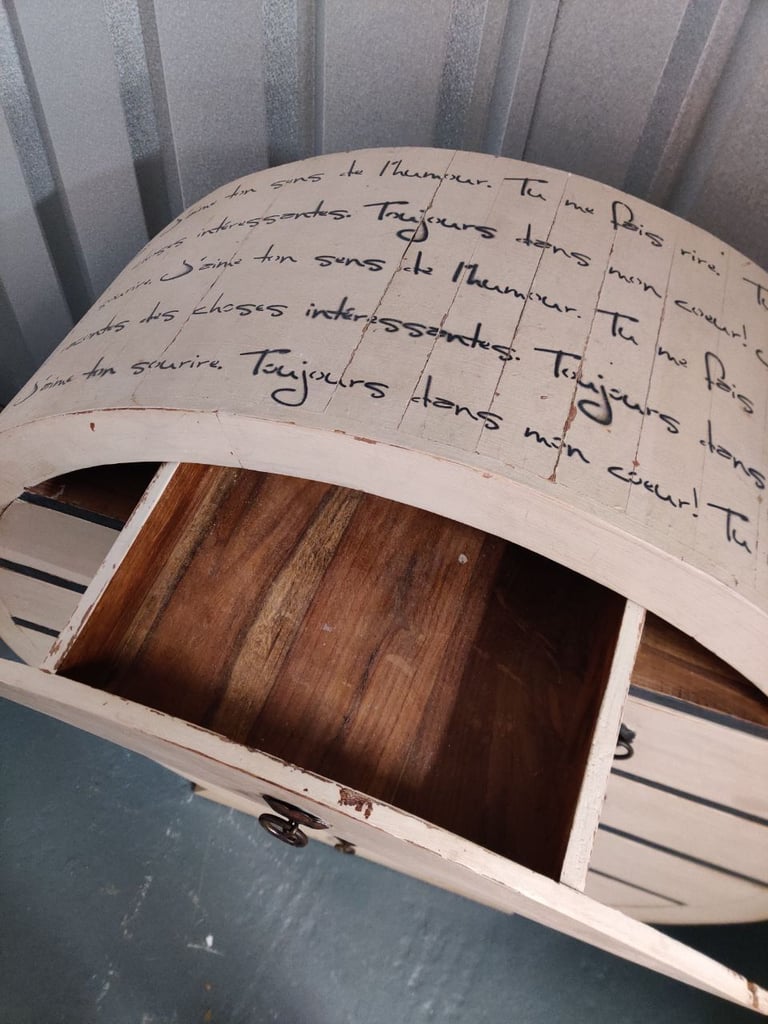 J'aime ton sens de l'humour. Tu me fais rire. Tu
choses intéressantes. Toujours dans mon coeur!
sourire. J'aime ton sens de l'humour. Tu me fais
racontes des choses intéressantes. Toujours dans
J'aime ton sourire. Toujours dans mon coeur! Tu